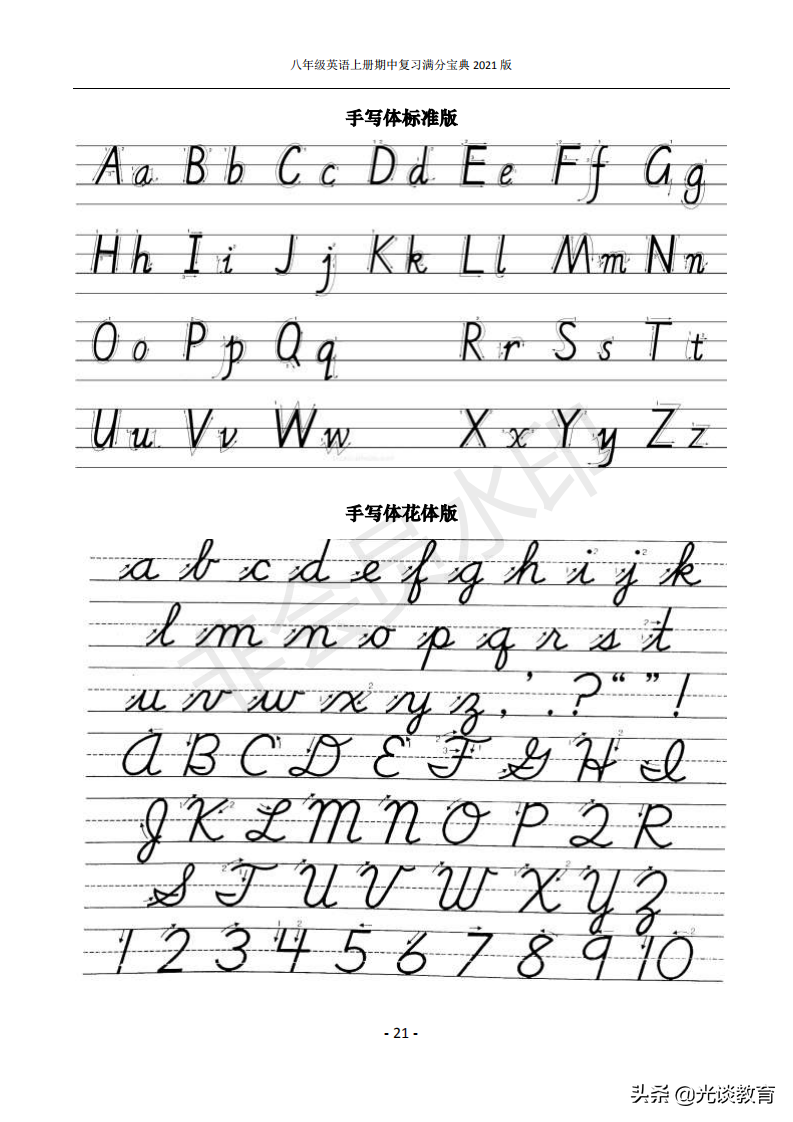 八年级英语上册期中复习满分宝典 2021 版
手写体标准版
Aa Bb Cc Dd Ee Ff Gg
Hh Ii Jj Kk Ll Mm Nn
Oo Pp Qq Rr Ss Tt
Uu Vv Ww Xx Yy Zz
手写体花体版
a b c d e f g h i j k
l m n o p q r s t
u v w x y z , ' . ? “ ” !
A B C D E F G H I
J K L M N O P Q R
S T U V W X Y Z
1 2 3 4 5 6 7 8 9 10
非会员水印
- 21 -
头条 @光谈教育